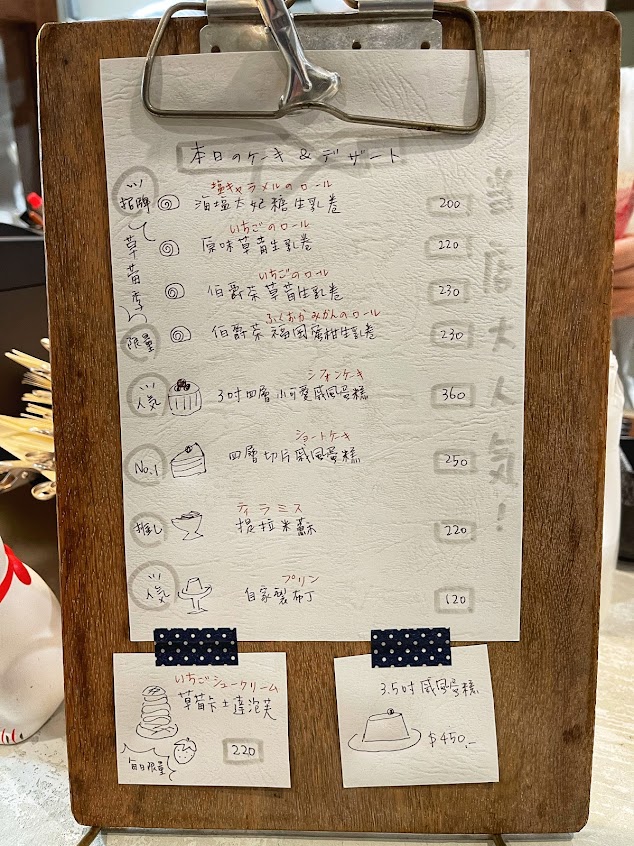 本日のケーキ & デザート
塩キャラメルのロール
招牌 海塩太妃糖生乳卷 200
いちごのロール
原味草莓生乳卷 220
草莓季
いちごのロール
伯爵茶草莓生乳卷 230
ふくおかみかんのロール
限量 伯爵茶福岡蜜柑生乳卷 230
シフォンケーキ
人気 3吋四層小可愛戚風蛋糕 360
ショートケーキ
No.1 四層切片戚風蛋糕 250
ティラミス
推し 提拉米蘇 220
プリン
人気 自家製布丁 120
當店大人気!
いちごシュークリーム
草莓卡士達泡芙
每日限量 220
3.5吋 戚風蛋糕
$450.-